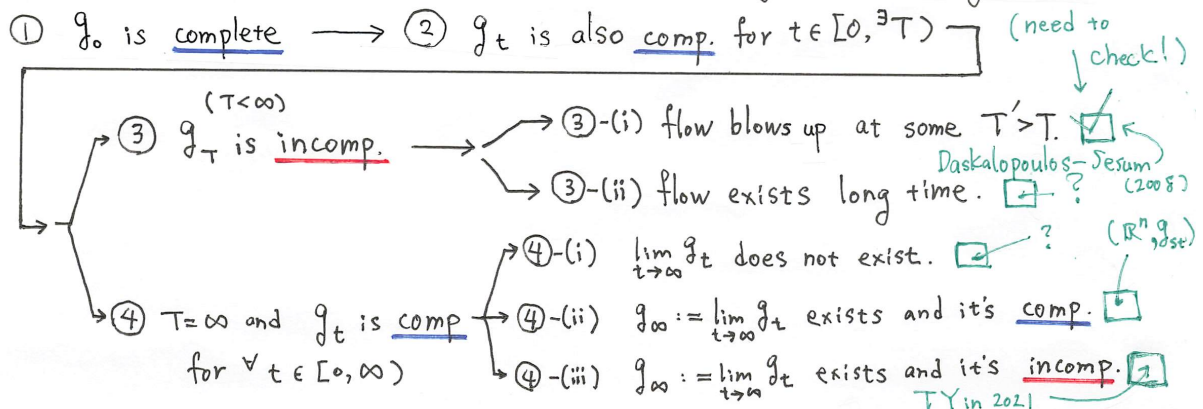 ① g₀ is complete ⟶ ② g_t is also comp. for t ∈ [0, ∃T)
(need to check!)
(T<∞)
③ g_T is incomp. ⟶ ③-(i) flow blows up at some T'>T.
Daskalopoulos-Sesum (2008)
③-(ii) flow exists long time. ?
④-(i) lim_{t→∞} g_t does not exist. ?
(ℝⁿ, g_st)
④ T=∞ and g_t is comp for ∀t ∈ [0,∞)
④-(ii) g_∞ := lim_{t→∞} g_t exists and it's comp.
④-(iii) g_∞ := lim_{t→∞} g_t exists and it's incomp.
TY in 2021